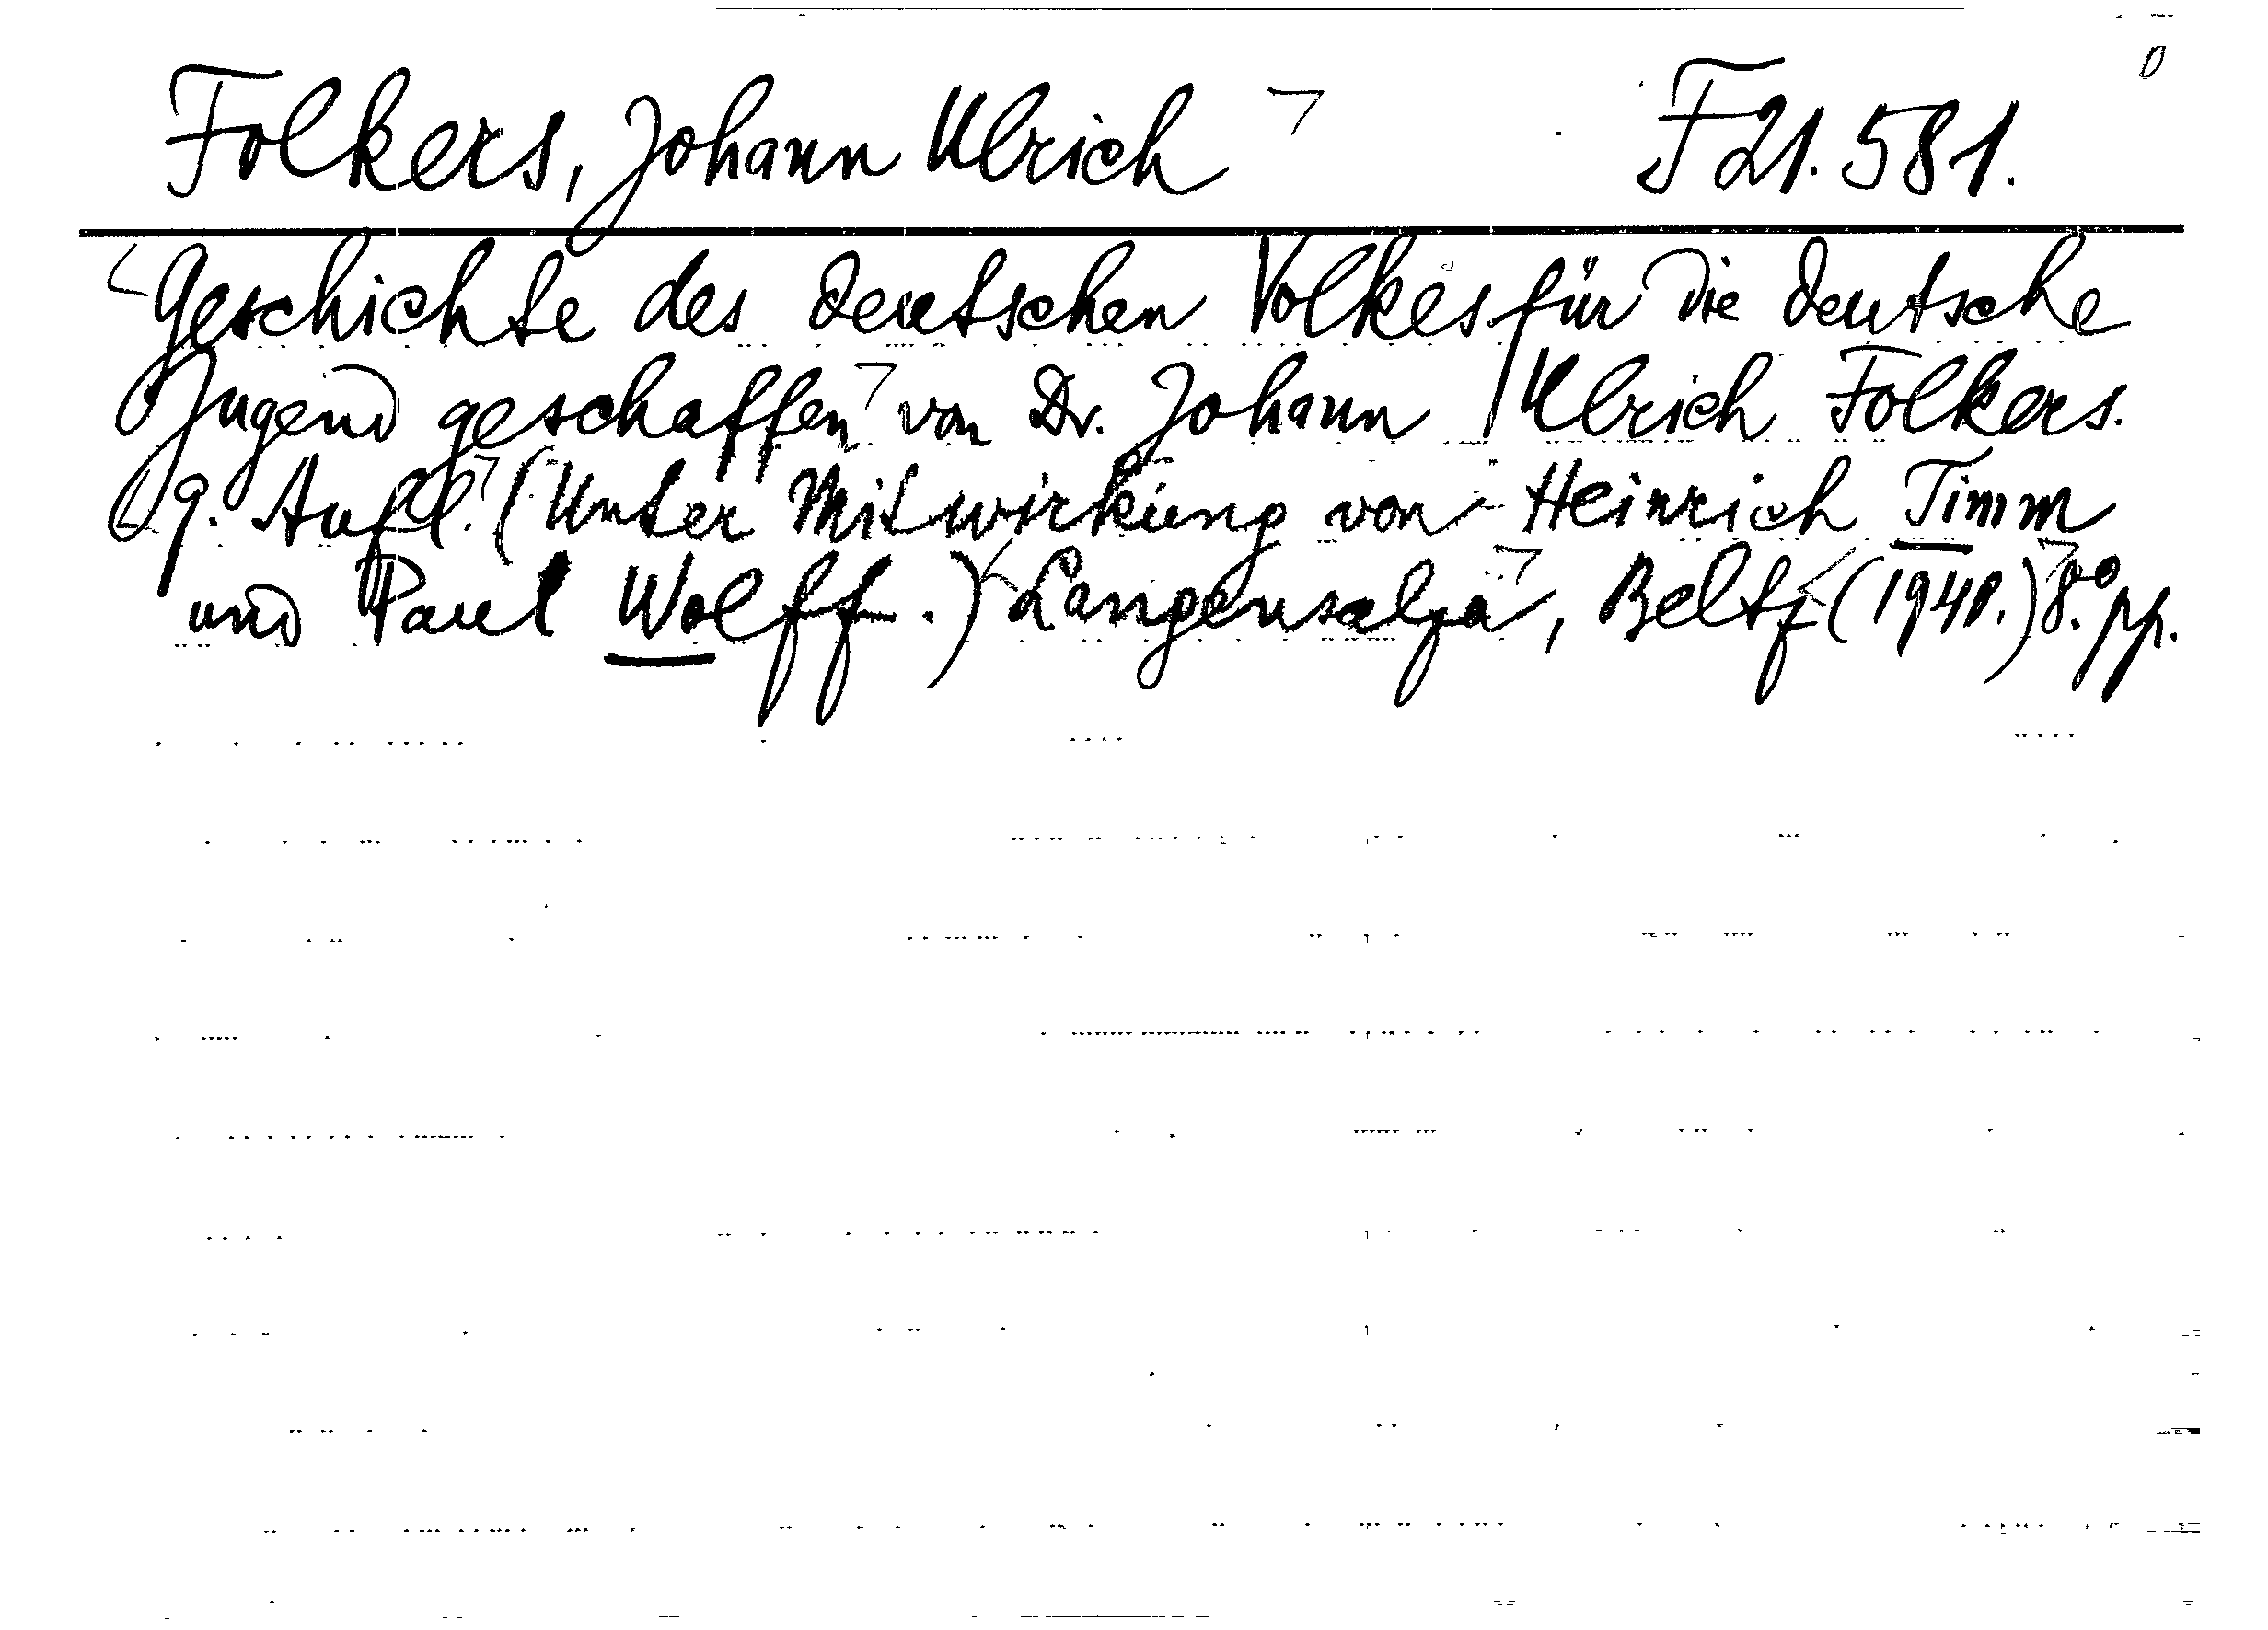 Folkers, Johann Ulrich F 21.581.
Geschichte des deutschen Volkes für die deutsche
Jugend geschaffen von Dr. Johann Ulrich Folkers.
9. Aufl. (Unter Mitwirkung von Heinrich Timm
und Paul Wolff.) Langensalza, Beltz (1941.) 8.° pp.